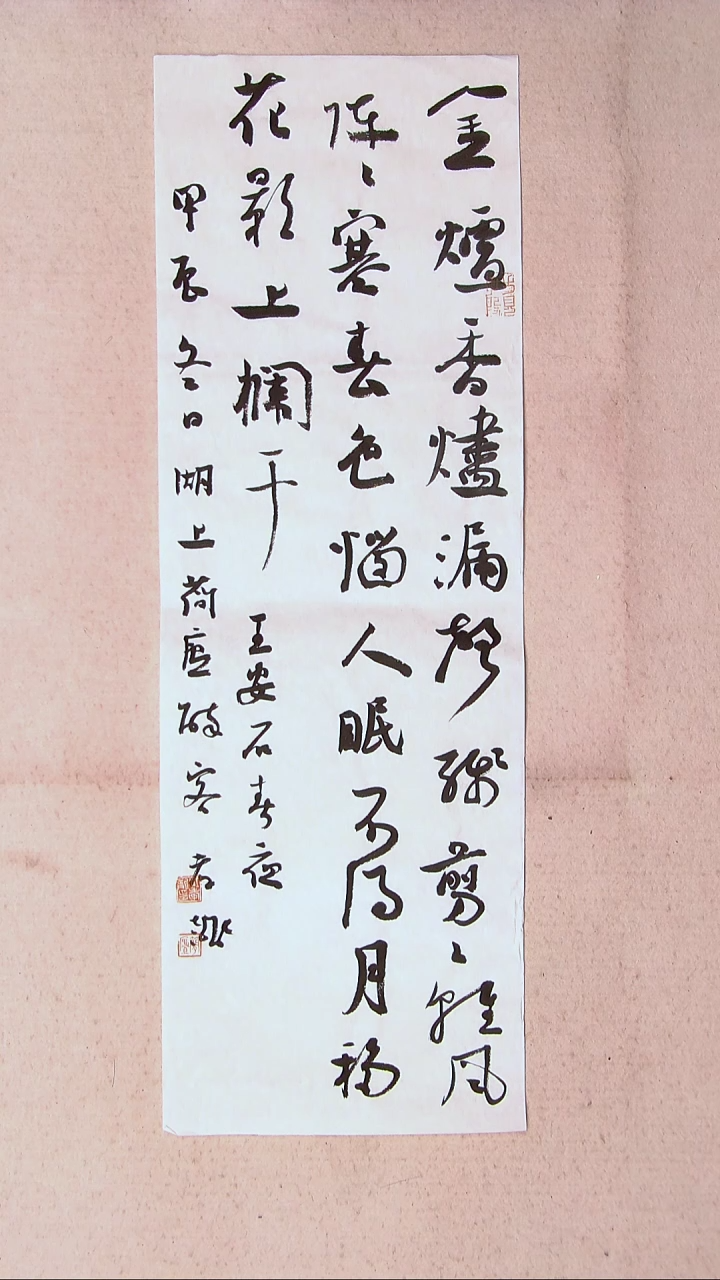 金爐香燼漏聲殘剪〻輕風
陣〻寒春色惱人眠不得月移
花影上欄干 王安石春夜
甲辰冬日湖上荷醉客